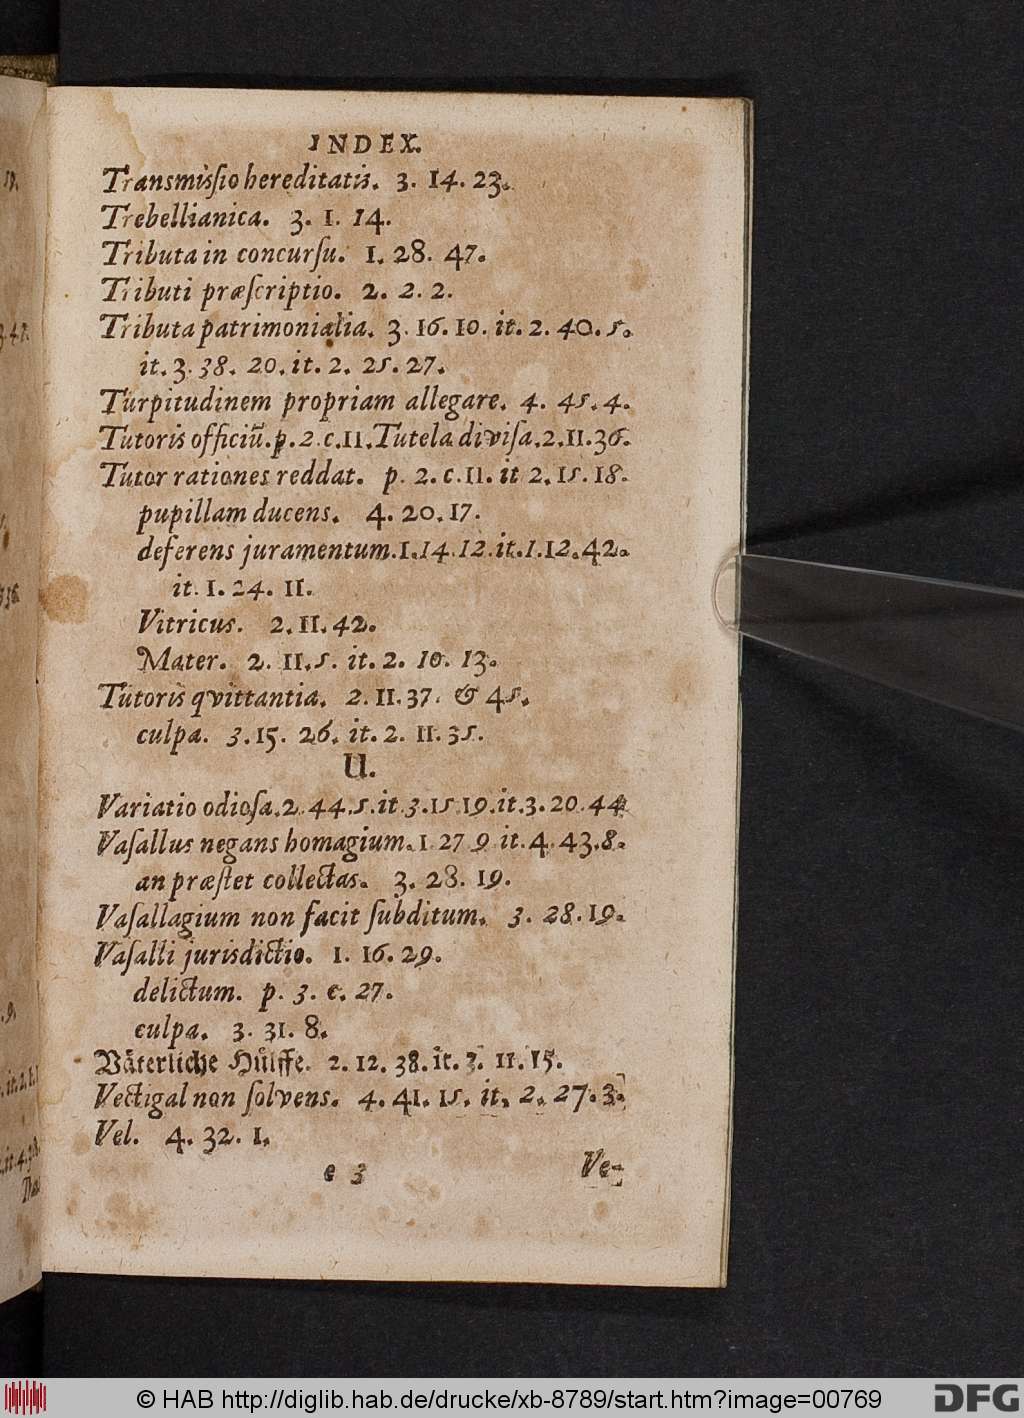 INDEX.
Transmißio hereditatis. 3. 14. 23.
Trebellianica. 3. 1. 14.
Tributa in concurſu. 1. 28. 47.
Tributi præſcriptio. 2. 2. 2.
Tributa patrimonialia. 3. 16. 10. it. 2. 40. 5.
it. 3. 38. 20. it. 2. 25. 27.
Turpitudinem propriam allegare. 4. 45. 4.
Tutoris officiũ. p. 2. c. 11. Tutela diviſa. 2. 11. 36.
Tutor rationes reddat. p. 2. c. 11. it 2. 15. 18.
pupillam ducens. 4. 20. 17.
deferens juramentum. 1. 14. 12. it. 1. 12. 42.
it. 1. 24. 11.
Vitricus. 2. 11. 42.
Mater. 2. 11. 5. it. 2. 10. 13.
Tutoris qvittantia. 2. 11. 37. & 45.
culpa. 3. 15. 26. it. 2. 11. 35.
U.
Variatio odioſa. 2. 44. 5. it 3. 15 19. it. 3. 20. 44
Vaſallus negans homagium. 1 27 9 it. 4. 43. 8.
an præſtet collectas. 3. 28. 19.
Vaſallagium non facit ſubditum. 3. 28. 19.
Vaſalli jurisdictio. 1. 16. 29.
delictum. p. 3. c. 27.
culpa. 3. 31. 8.
Väterliche Hülffe. 2. 12. 38. it. 3. 11. 15.
Vectigal non ſolvens. 4. 41. 15. it. 2. 27. 3.
Vel. 4. 32. 1.
e 3 Ve-
© HAB http://diglib.hab.de/drucke/xb-8789/start.htm?image=00769
DFG